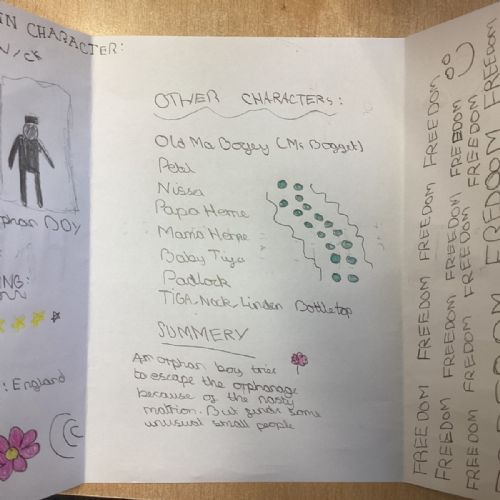 IN CHARACTER:
Nick
orphan BOY
ING:
: England
OTHER CHARACTERS:
Old Ma Bogey (Ms Bogget)
Petal
Nissa
Papa Herne
Mama Herne
Baby Tiga
Padlock
TIGA-Nock-Linden Bottletop
SUMMERY
An orphan boy tries
to escape the orphanage
because of the nasty
matron. But finds some
unusual small people
FREEDOM FREEDOM FREEDOM FREEDOM
FREEDOM FREEDOM FREEDOM
FREEDOM FREEDOM FREEDOM
FREEDOM FREEDOM